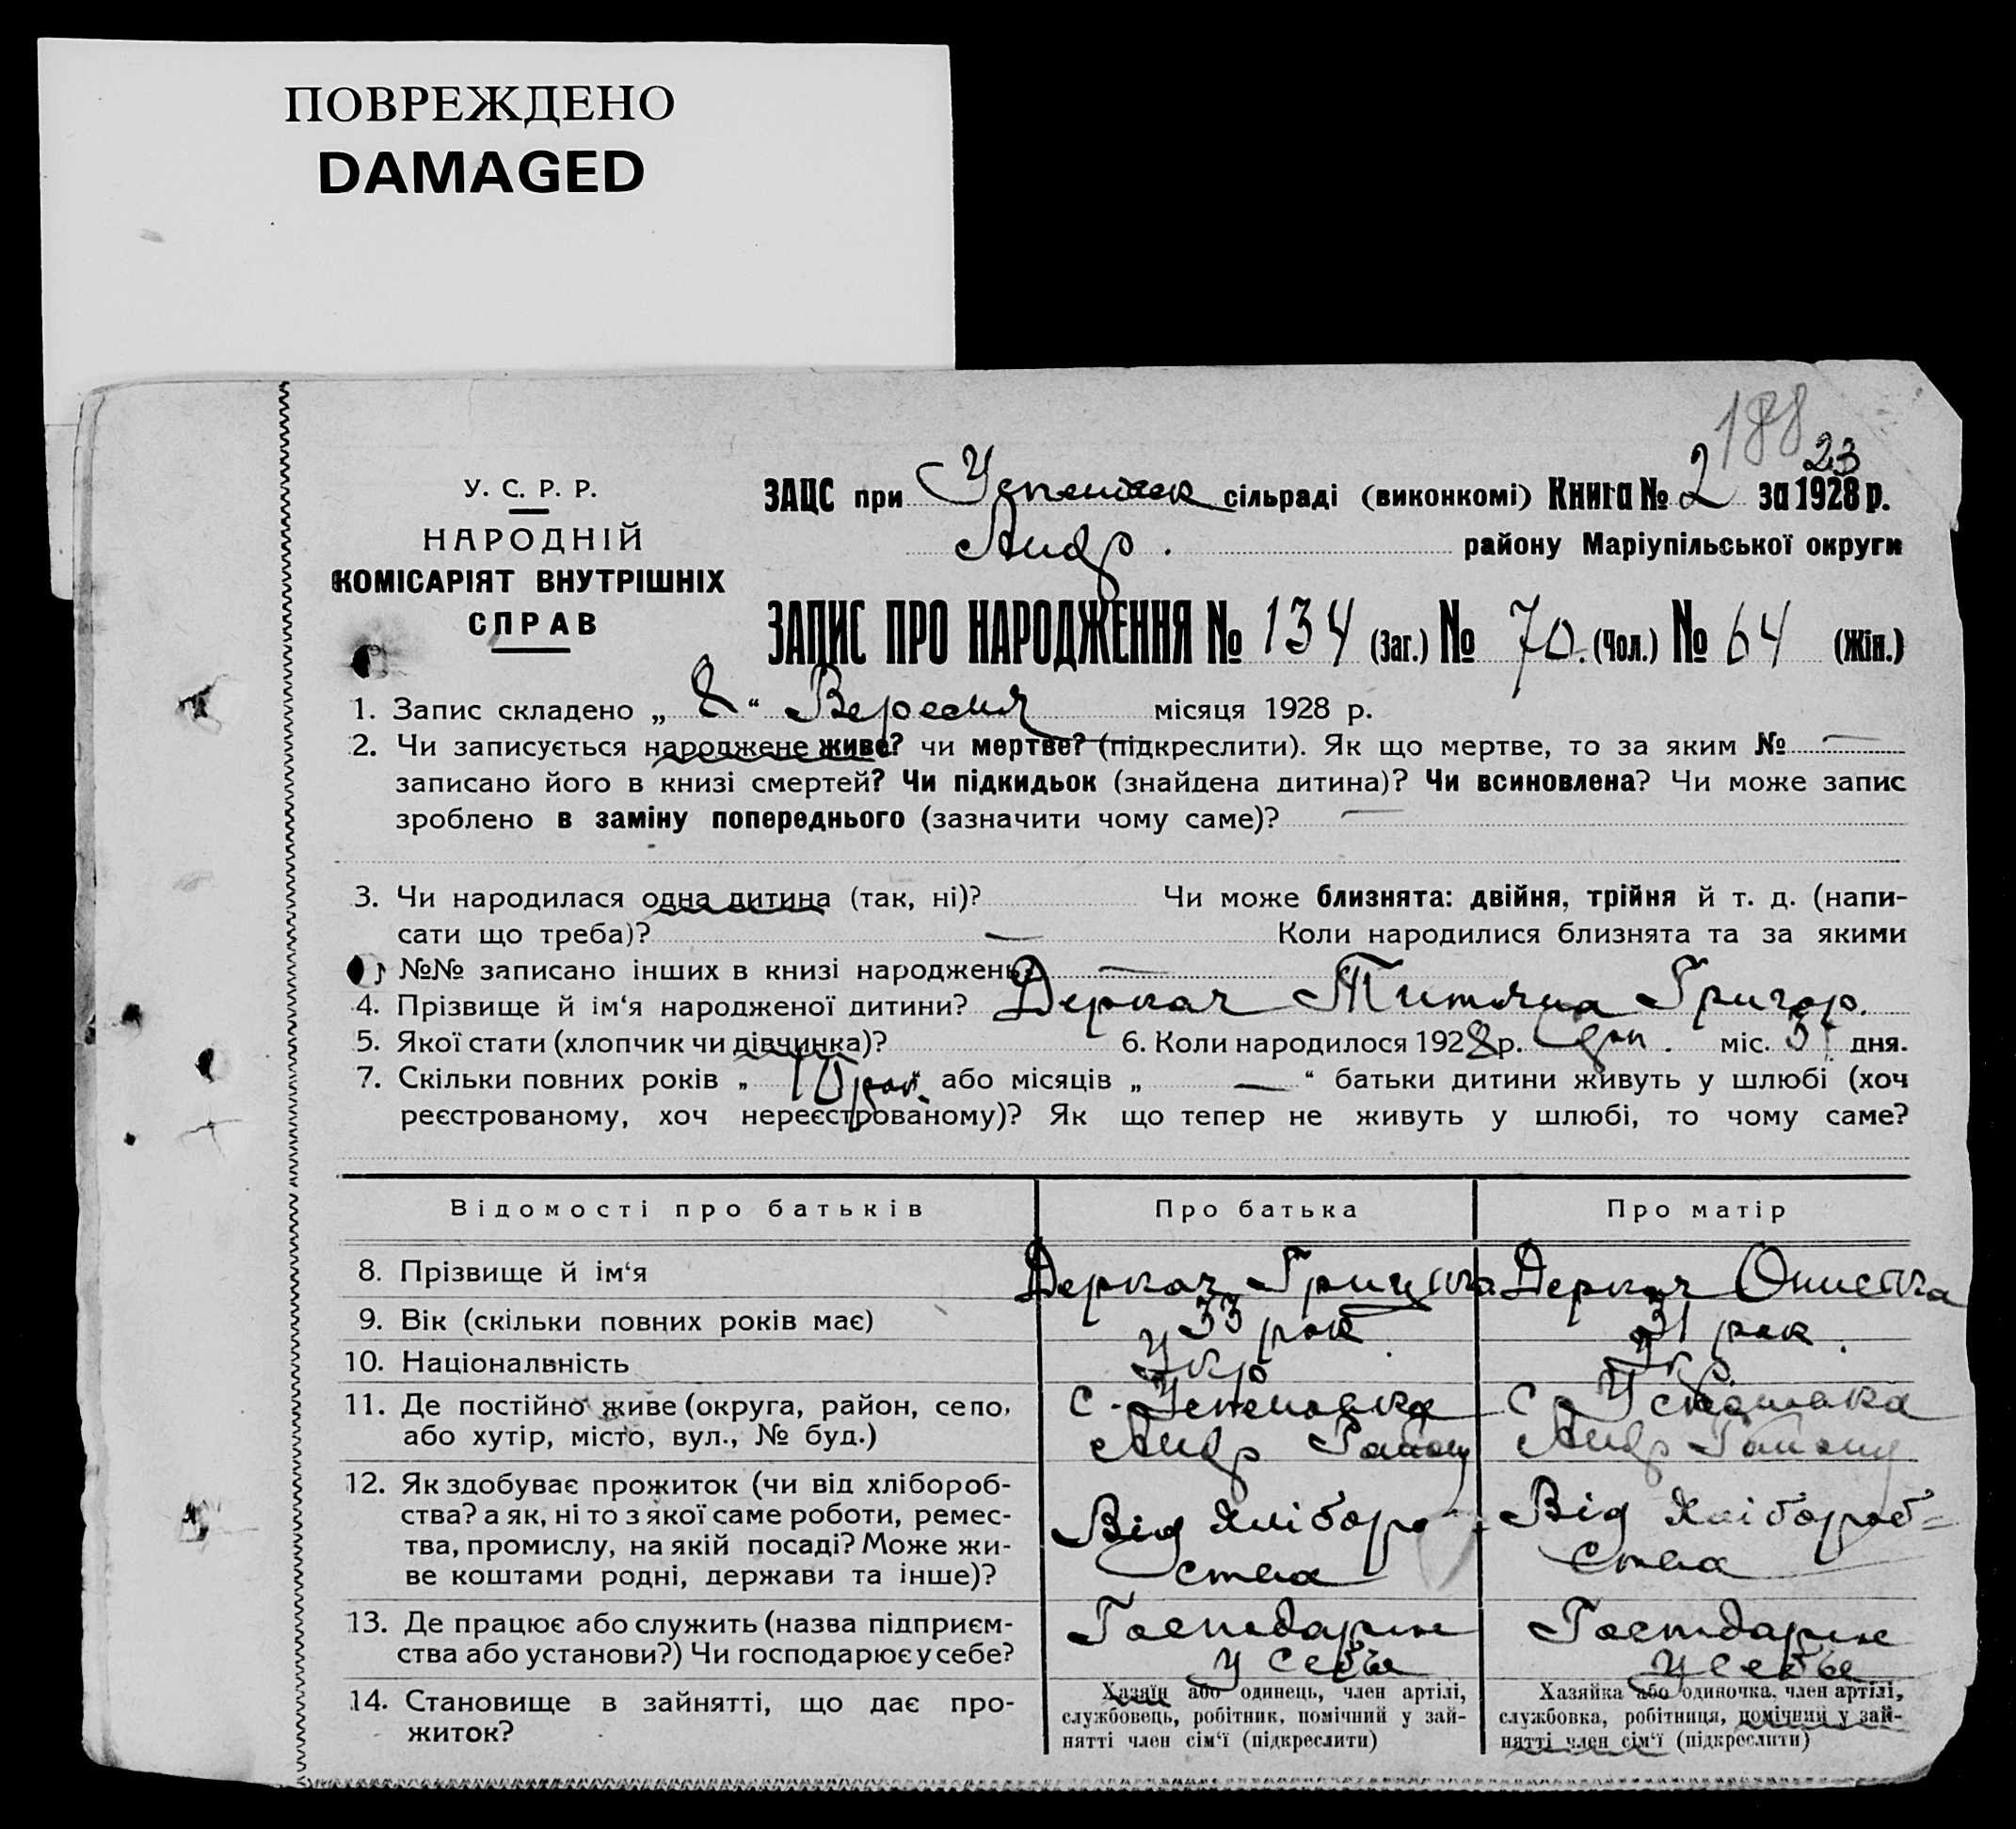 ПОВРЕЖДЕНО
DAMAGED
188
23
У. С. Р. Р.
НАРОДНІЙ
КОМІСАРІЯТ ВНУТРІШНІХ
СПРАВ
ЗАЦС при Успенівск сільраді (виконкомі) Книга № 2 за 1928 р.
Андр. району Маріупільської округи
ЗАПИС ПРО НАРОДЖЕННЯ № 134 (Заг.) № 70. (Чол.) № 64 (Жін.)
1. Запис складено „ 8 “ Вересня місяця 1928 р.
2. Чи записується народжене живе? чи мертве? (підкреслити). Як що мертве, то за яким № —
записано його в книзі смертей? Чи підкидьок (знайдена дитина)? Чи всиновлена? Чи може запис
зроблено в заміну попереднього (зазначити чому саме)? —
3. Чи народилася одна дитина (так, ні)? Чи може близнята: двійня, трійня й т. д. (напи-
сати що треба)? — Коли народилися близнята та за якими
№№ записано інших в книзі народжень? —
4. Прізвище й ім‘я народженої дитини? Деркач Титяна Григор.
5. Якої стати (хлопчик чи дівчинка)? 6. Коли народилося 1928 р. міс. дня.
7. Скільки повних років „ 10 рок. “ або місяців „ — “ батьки дитини живуть у шлюбі (хоч
реєстрованому, хоч нереєстрованому)? Як що тепер не живуть у шлюбі, то чому саме?
Відомості про батьків Про батька Про матір
8. Прізвище й ім‘я Деркач Грицько Деркач Ониська
9. Вік (скільки повних років має) 33 рок. 31 рок.
10. Національність Укр Укр.
11. Де постійно живе (округа, район, село, с. Успеновка с. Успеновка
або хутір, місто, вул., № буд.) Андр Району Андр Району
12. Як здобуває прожиток (чи від хлібороб-
ства? а як, ні то з якої саме роботи, ремес-
тва, промислу, на якій посаді? Може жи-
ве коштами родні, держави та інше)?
Від Хліборо-
ства
Від Хлібороб=
ства
13. Де працює або служить (назва підприєм-
ства або установи?) Чи господарює у себе?
Господарює
у себе
Господарює
у себе
14. Становище в зайнятті, що дає про-
житок?
Хазяїн або одинець, член артілі,
службовець, робітник, помічний у зай-
нятті член сім‘ї (підкреслити)
Хазяйка або одиночка, член артілі,
службовка, робітниця, помічний у зай-
нятті член сім‘ї (підкреслити)